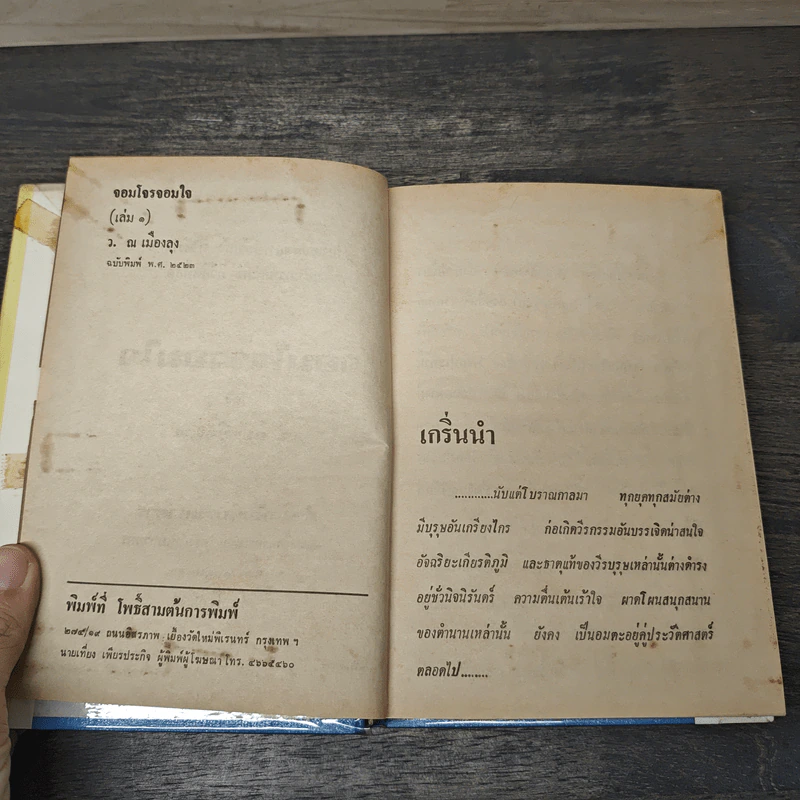 จอมโจรจอมใจ
(เล่ม ๑)
ว. ณ เมืองลุง
ฉบับพิมพ์ พ.ศ. ๒๕๒๓
พิมพ์ที่ โพธิ์สามต้นการพิมพ์
๒๗๔/๑๙ ถนนอิสรภาพ เยื้องวัดใหม่พิเรนทร์ กรุงเทพ ฯ
นายเที่ยง เพียรประกิจ ผู้พิมพ์ผู้โฆษณา โทร. ๔๖๖๕๔๖๐
เกริ่นนำ
............นับแต่โบราณกาลมา ทุกยุคทุกสมัยต่าง
มีบุรุษอันเกรียงไกร ก่อเกิดวีรกรรมอันบรรเจิดน่าสนใจ
อัจฉริยะเกียรติภูมิ และธาตุแท้ของวีรบุรุษเหล่านั้นต่างดำรง
อยู่ชั่วนิจนิรันดร์ ความตื่นเต้นเร้าใจ ผาดโผนสนุกสนาน
ของตำนานเหล่านั้น ยังคง เป็นอมตะอยู่คู่ประวัติศาสตร์
ตลอดไป........